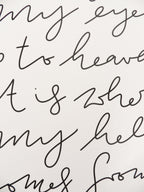 my eye
to heave
t is wher
my hel
omes from